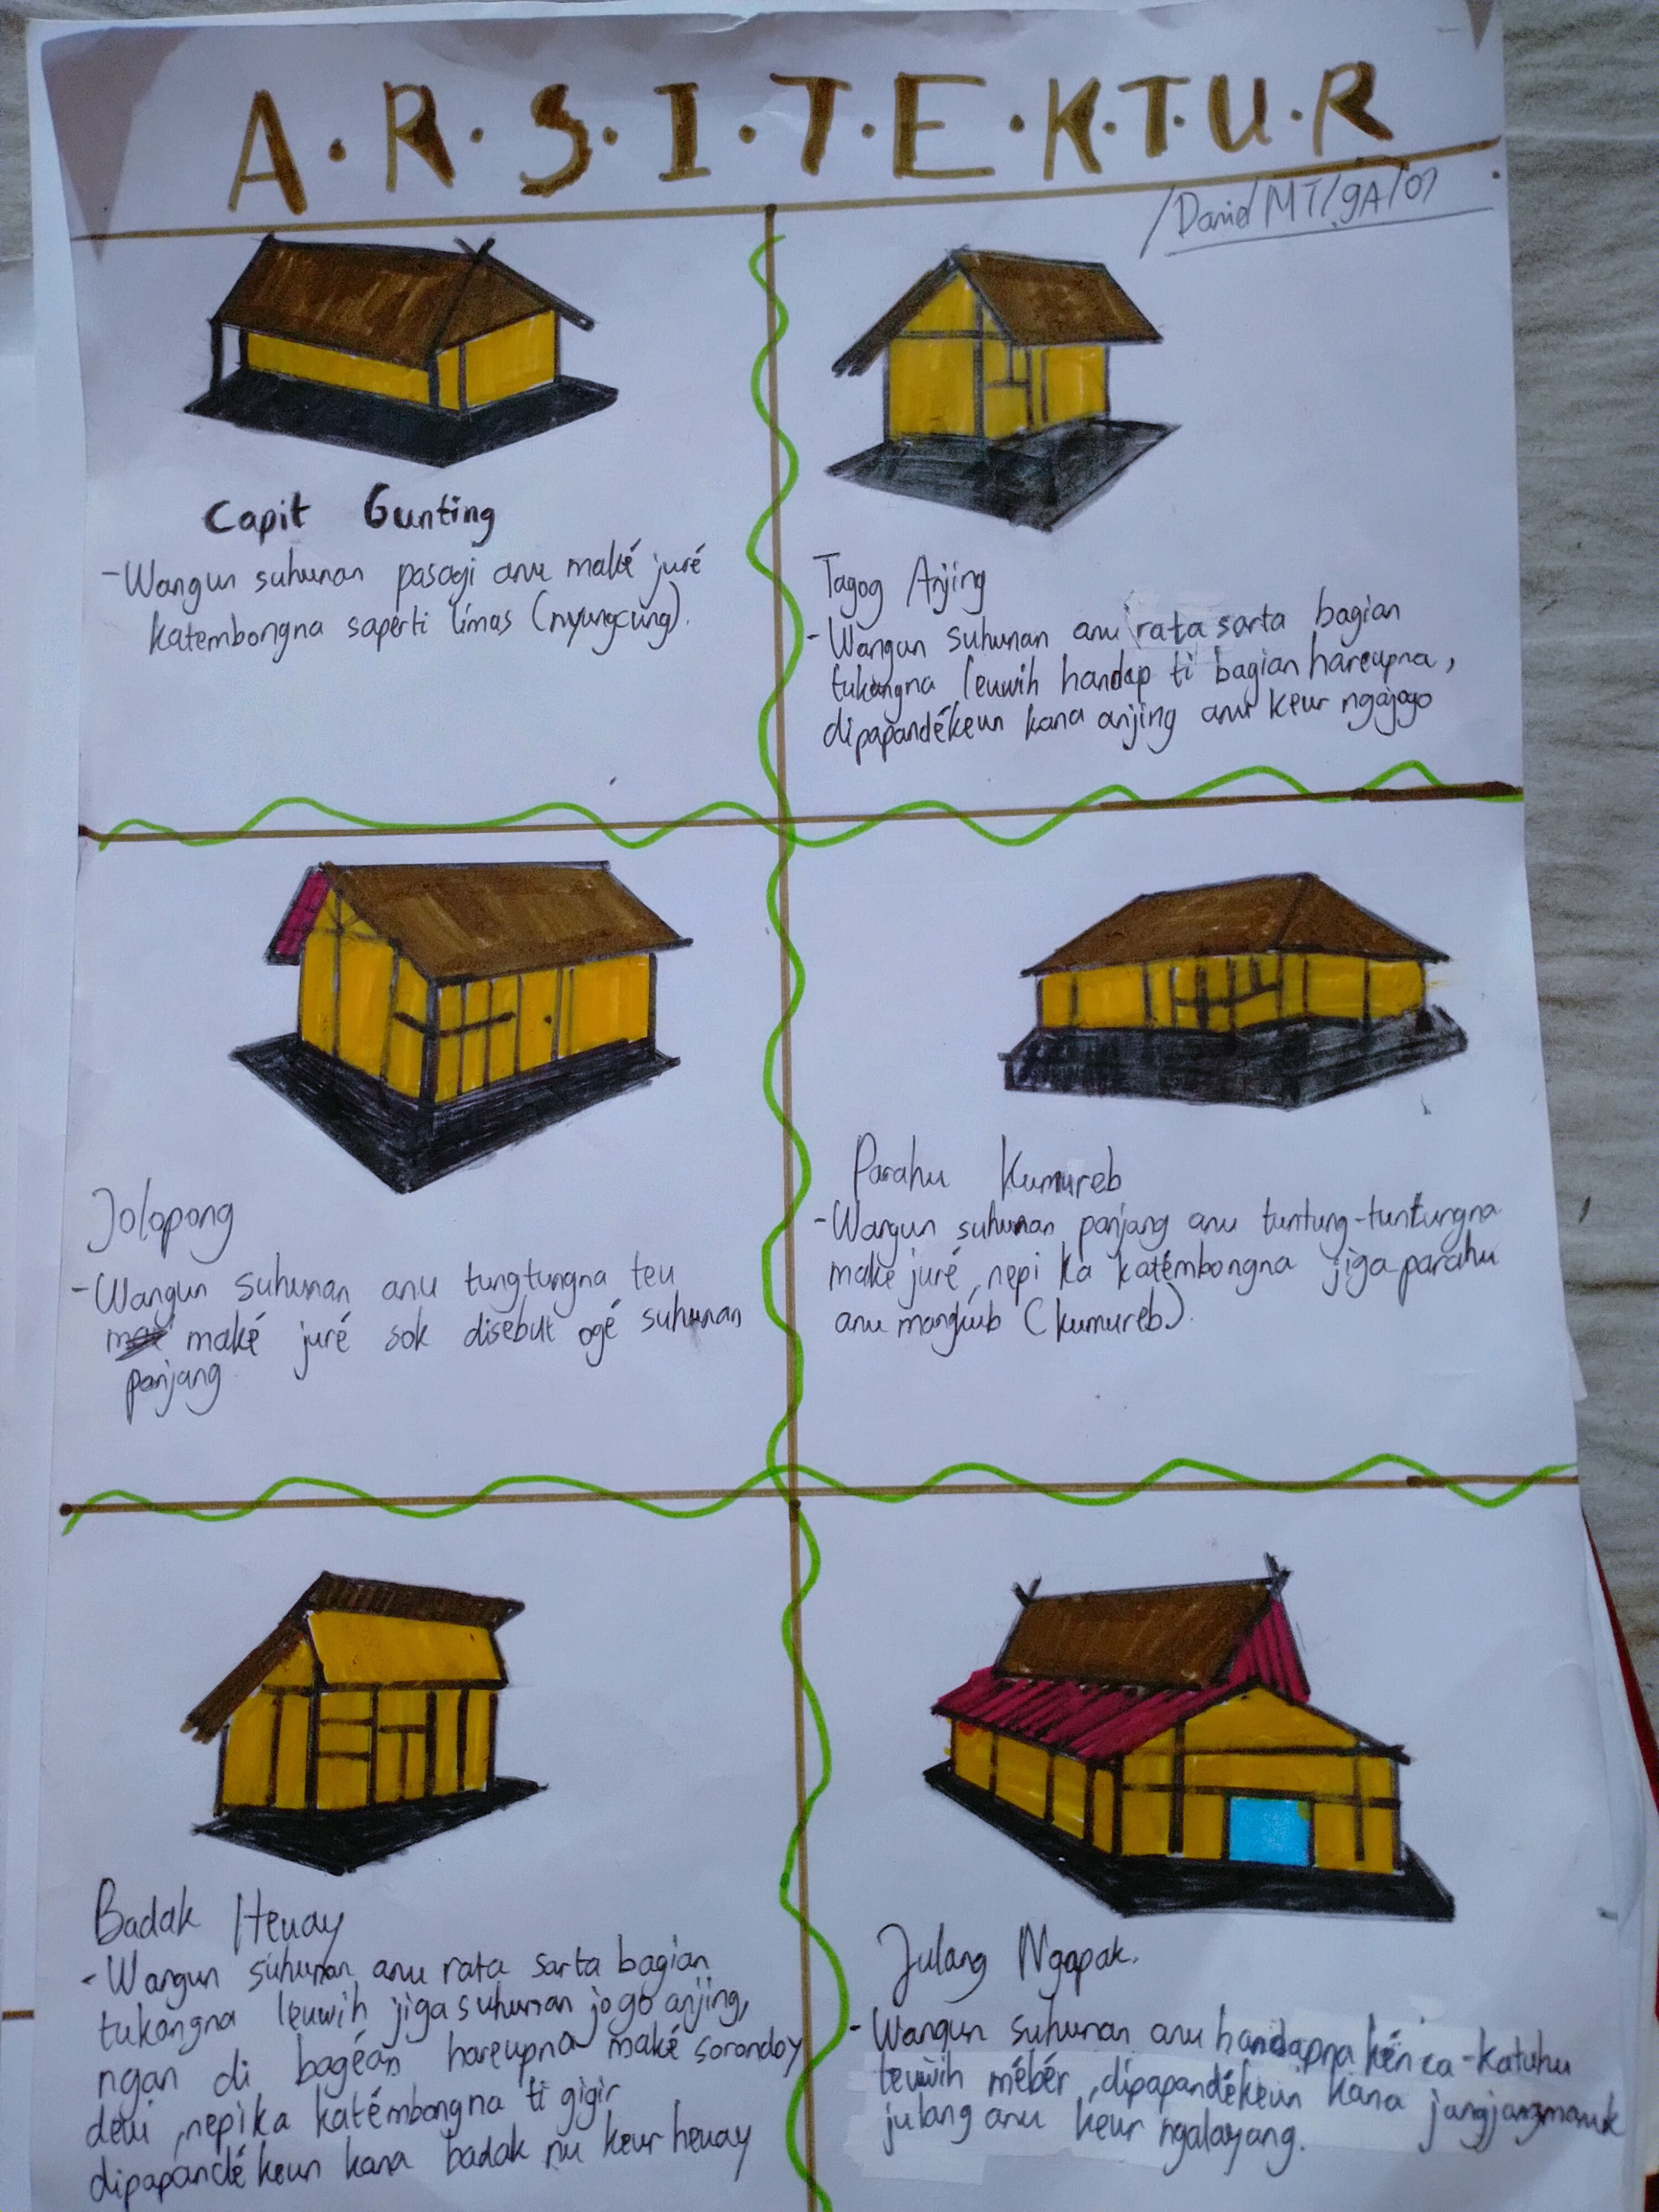 A.R.S.I.T.E.K.T.U.R
/David MT/9A/07
Capit Gunting
-Wangun suhunan pasagi anu maké juré
katembongna saperti limas (nyungcung).
Tagog Anjing
-Wangun suhunan anu rata sarta bagian
tukangna leuwih handap ti bagian hareupna,
dipapandékeun kana anjing anu keur ngajogo
Jolopong
-Wangun suhunan anu tungtungna teu
maké juré sok disebut ogé suhunan
panjang
Parahu Kumureb
-Wangun suhunan panjang anu tuntung-tuntungna
maké juré, nepi ka katémbongna jiga parahu
anu mangkub (kumureb).
Badak Heuay
-Wangun suhunan anu rata sarta bagian
tukangna leuwih jiga suhunan jogo anjing,
ngan di bagéan hareupna maké sorondoy
deui, nepika katémbongna ti gigir
dipapandékeun kana badak nu keur heuay
Julang Ngapak.
-Wangun suhunan anu handapna kénca-katuhu
leuwih mébér, dipapandékeun kana jangjangmanuk
julang anu keur ngalayang.